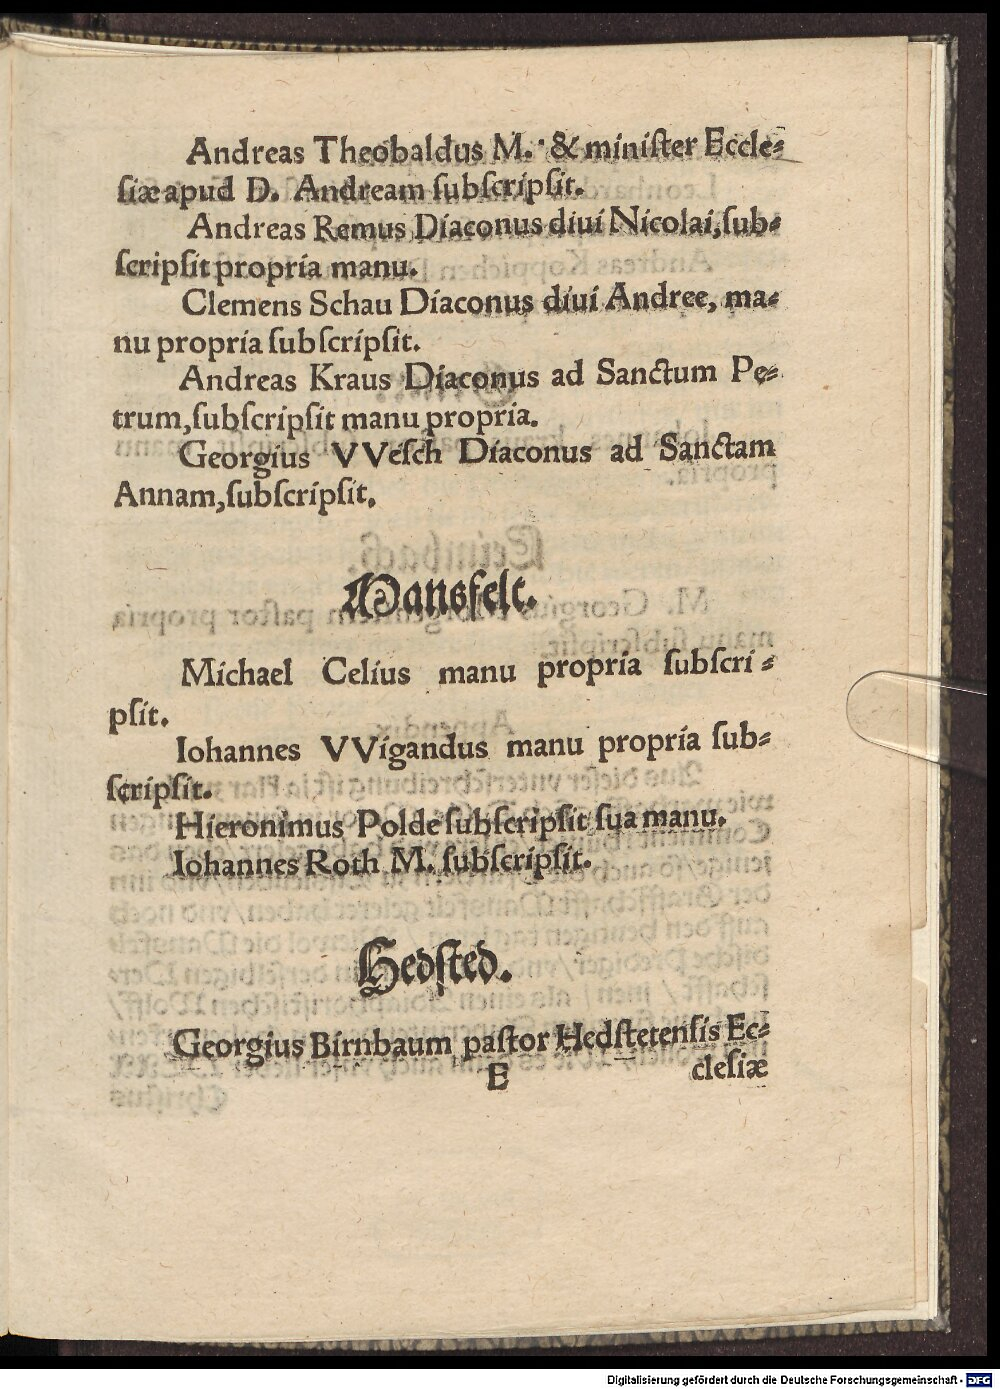 Andreas Theobaldus M. & miniſter Eccle⸗
ſiæ apud D. Andream ſubſcripſit.
Andreas Remus Diaconus diui Nicolai, ſub⸗
ſcripſit propria manu.
Clemens Schau Diaconus diui Andree, ma⸗
nu propria ſubſcripſit.
Andreas Kraus Diaconus ad Sanctum Pe⸗
trum, ſubſcripſit manu propria.
Georgius VVeſch Diaconus ad Sanctam
Annam, ſubſcripſit.
Mansfelt.
Michael Celius manu propria ſubſcri⸗
pſit.
Iohannes VVigandus manu propria ſub⸗
ſcripſit.
Hieronimus Polde ſubſcripſit ſua manu.
Iohannes Roth M. ſubſcripſit.
Hedſted.
Georgius Birnbaum paſtor Hedſtetenſis Ec⸗
E cleſiæ
Digitalisierung gefördert durch die Deutsche Forschungsgemeinschaft - DFG